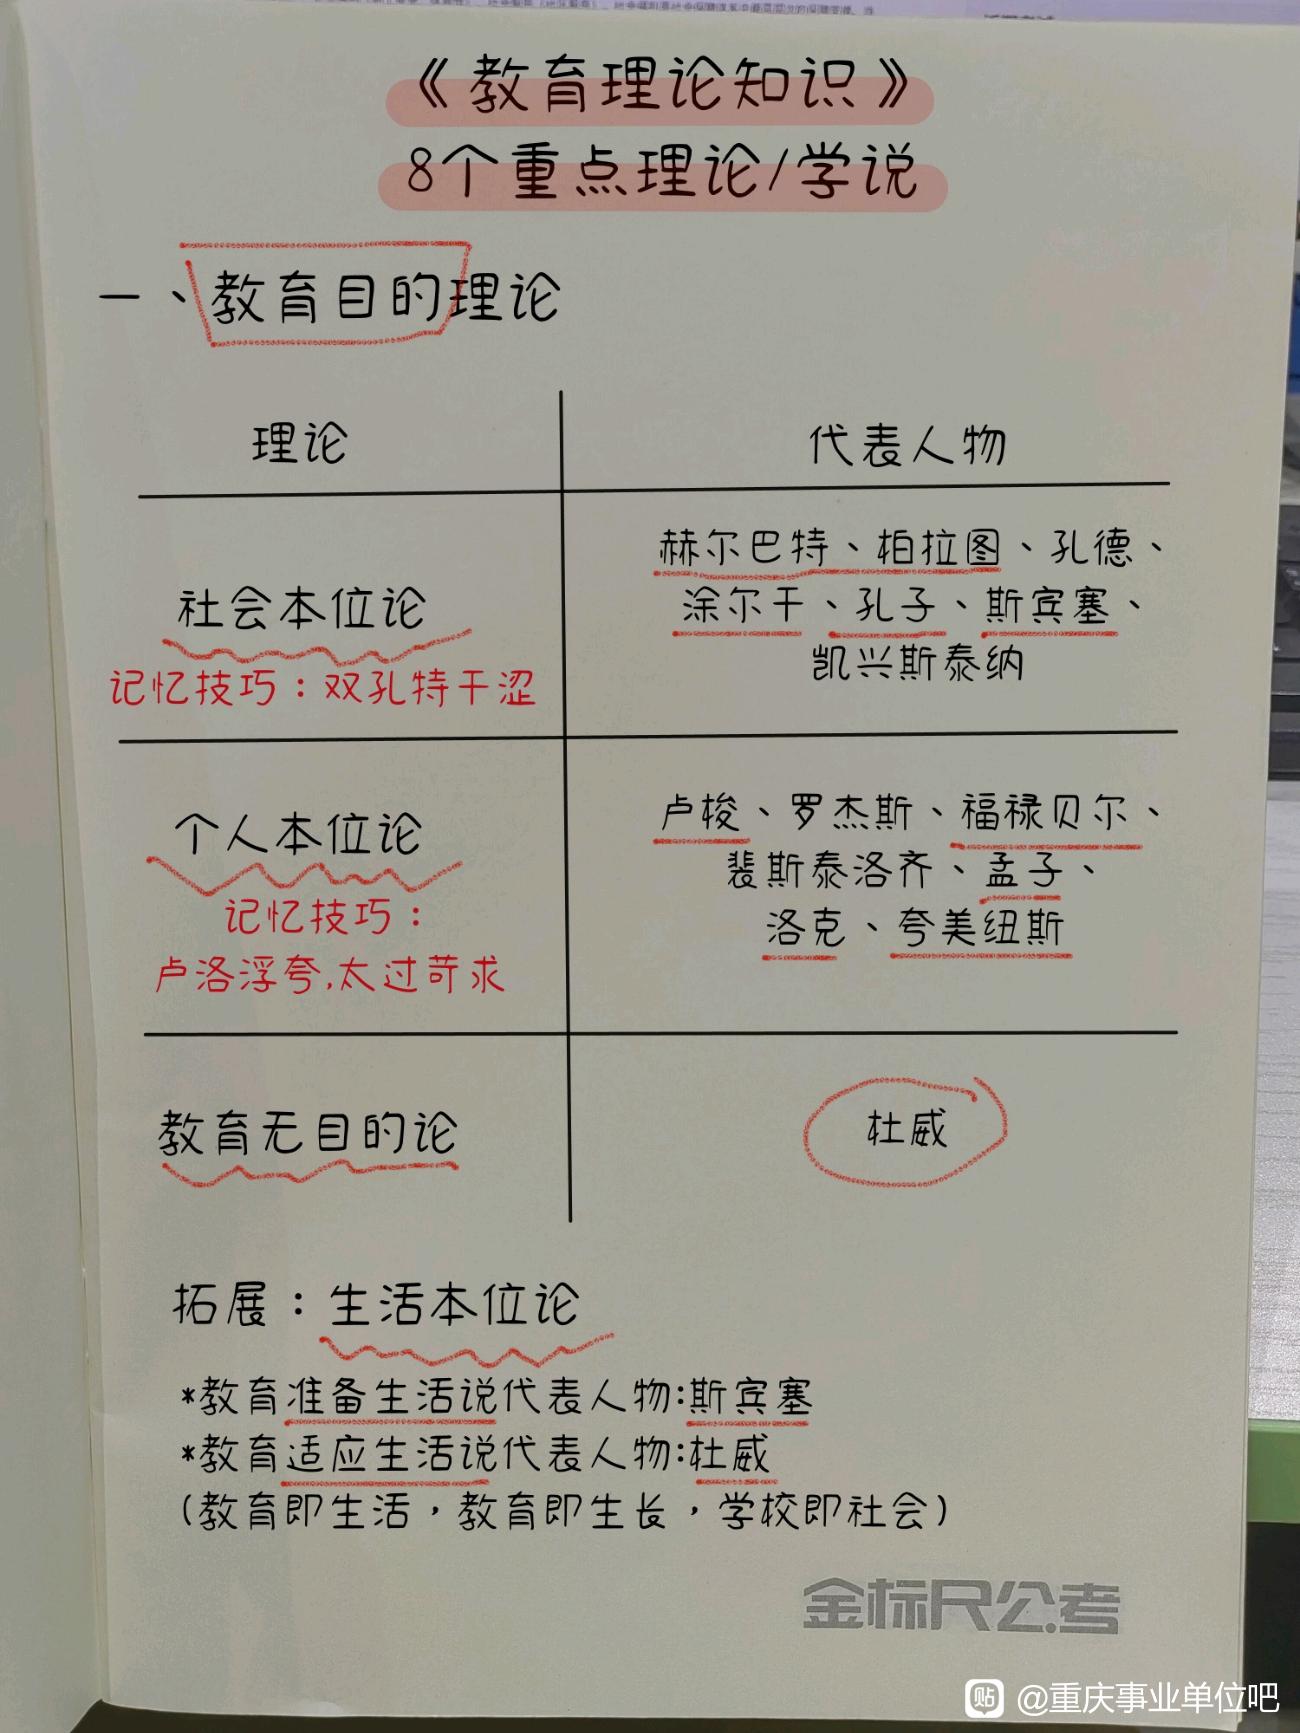 《教育理论知识》
8个重点理论/学说
一、教育目的理论
理论
代表人物
社会本位论
记忆技巧：双孔特干涩
赫尔巴特、柏拉图、孔德、
涂尔干、孔子、斯宾塞、
凯兴斯泰纳
个人本位论
记忆技巧：
卢洛浮夸,太过苛求
卢梭、罗杰斯、福禄贝尔、
裴斯泰洛齐、孟子、
洛克、夸美纽斯
教育无目的论
杜威
拓展：生活本位论
*教育准备生活说代表人物:斯宾塞
*教育适应生活说代表人物:杜威
(教育即生活，教育即生长，学校即社会)
金标尺公考
贴 @重庆事业单位吧